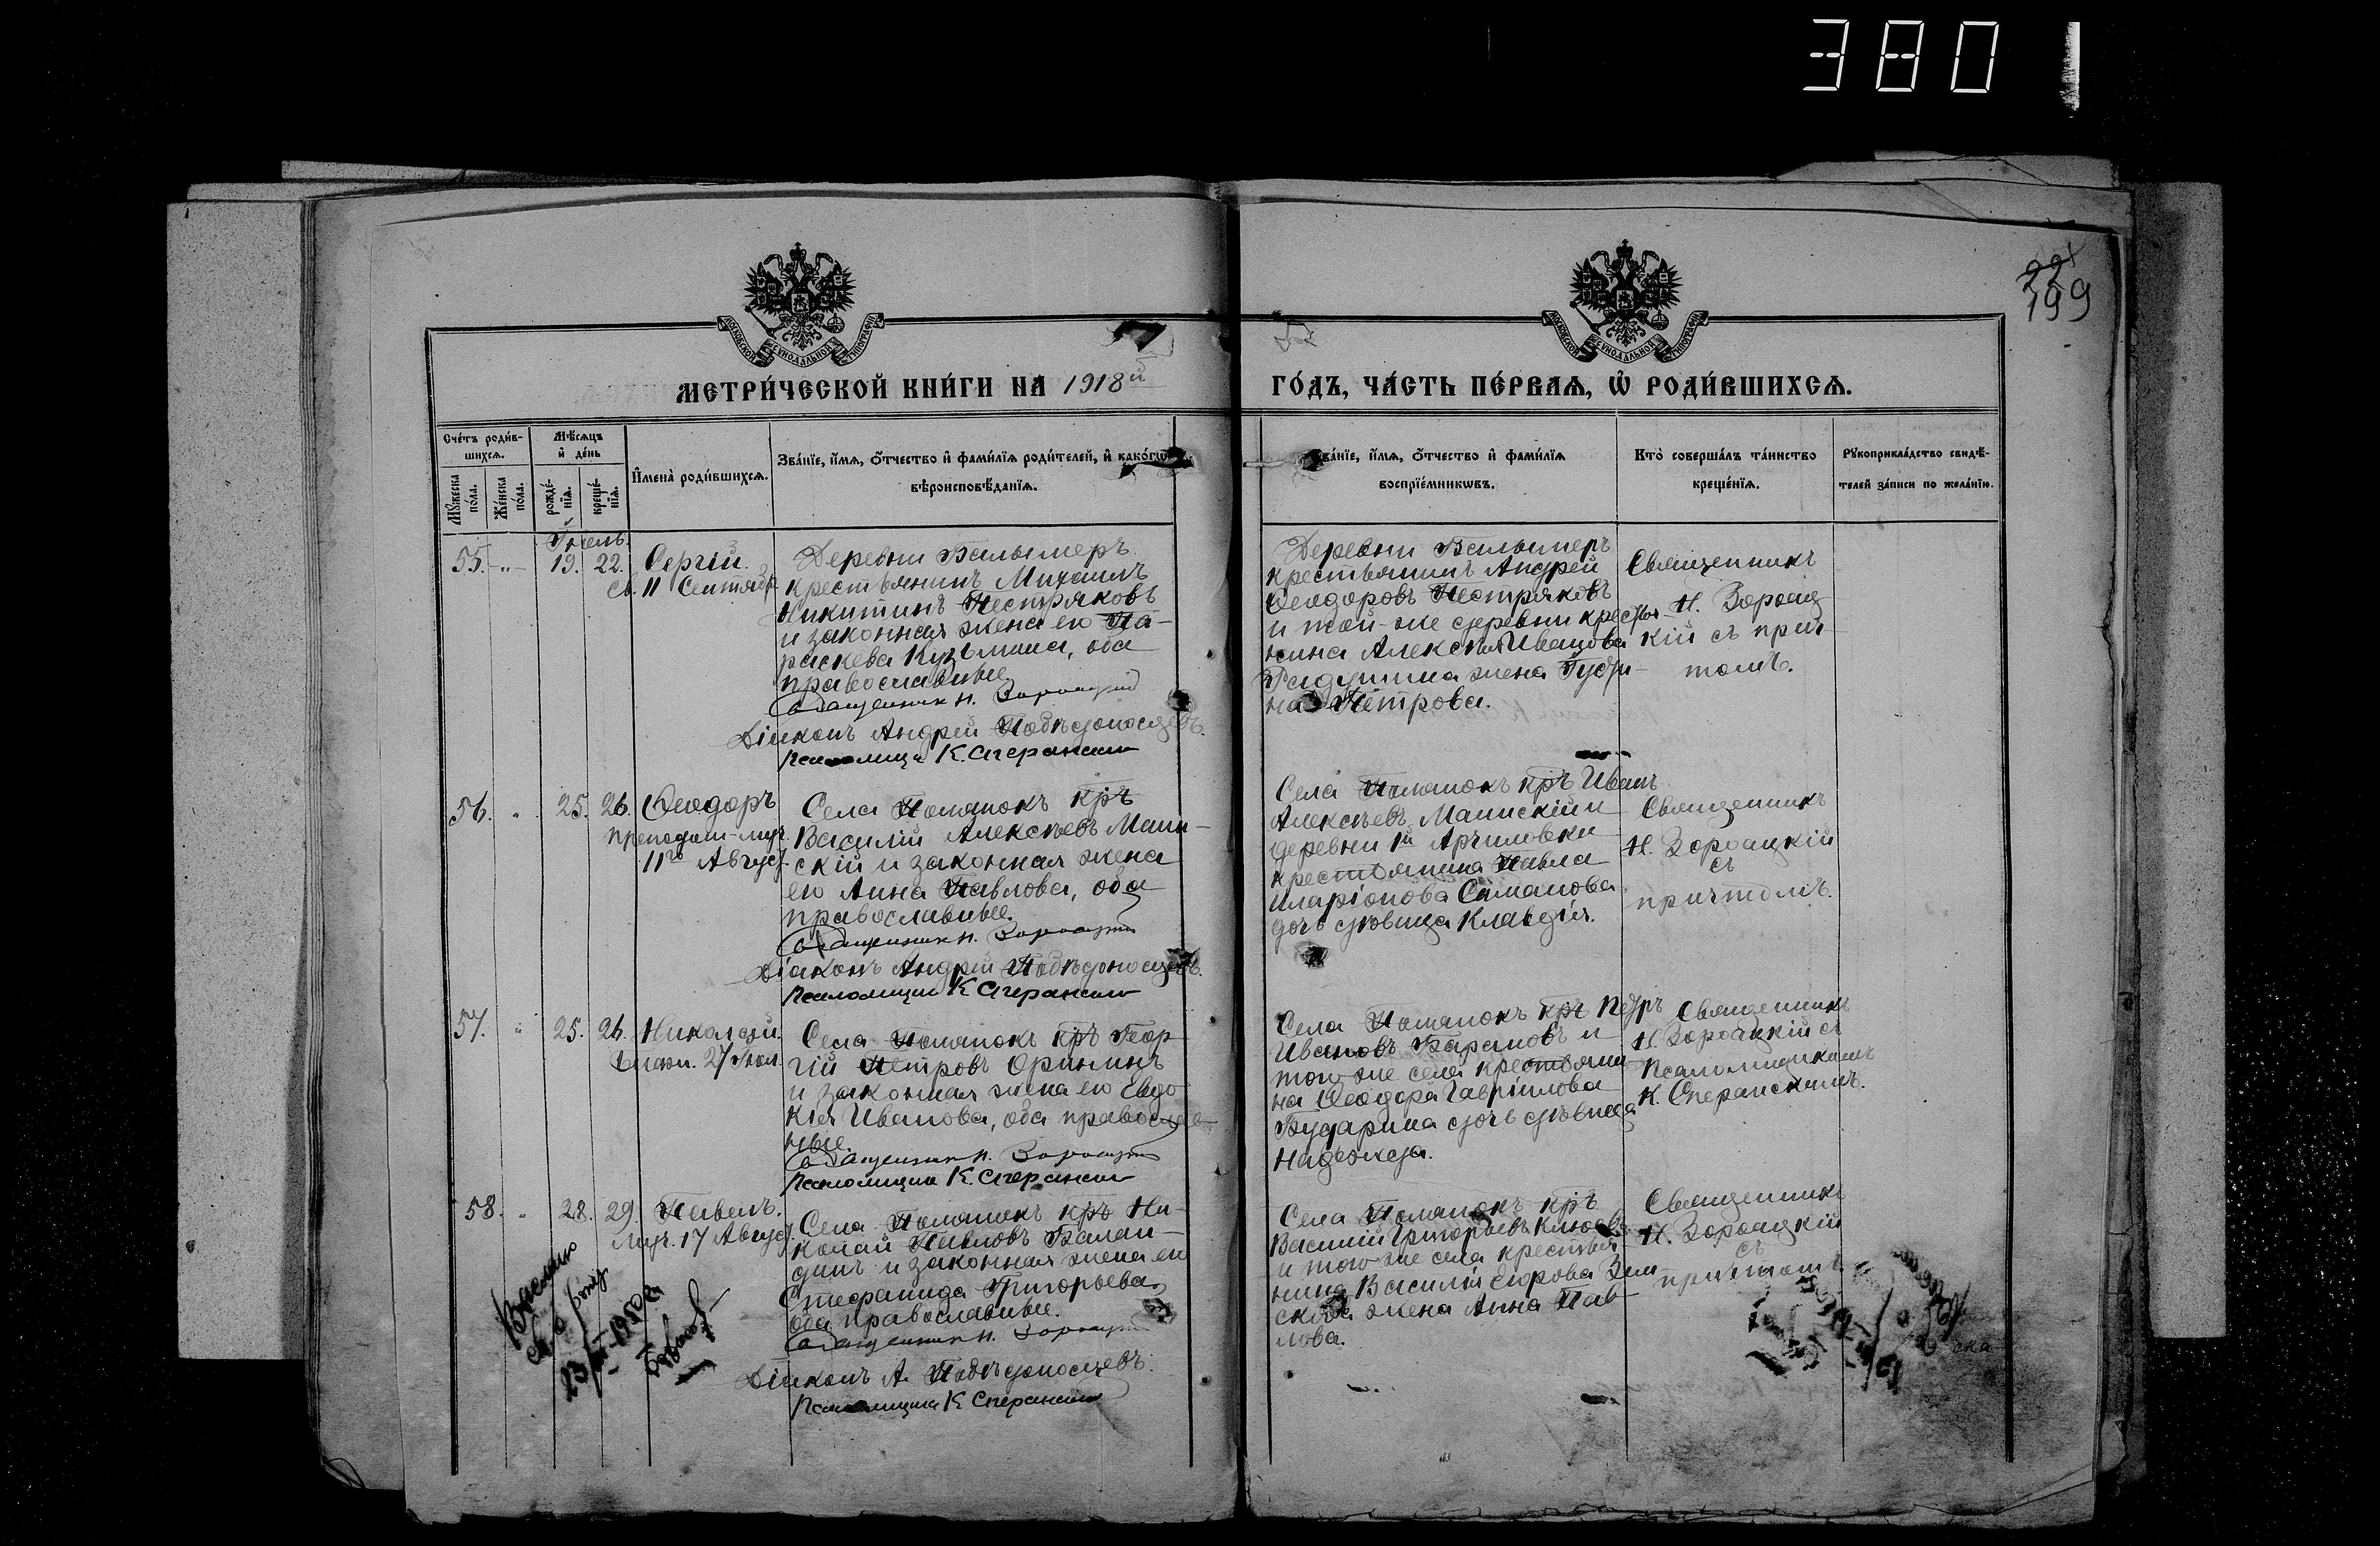 3801
221
199
МОСКОВСКОЙ СѴНОДАЛЬНОЙ ТИПОГРАФІИ
МОСКОВСКОЙ СѴНОДАЛЬНОЙ ТИПОГРАФІИ
МЕТРИ́ЧЕСКОЙ КНИ́ГИ НА 1918й
ГО́ДЪ, ЧА́СТЬ ПЕ́РВАѦ, Ѡ҆ РОДИ́ВШИХСѦ.
Сче́тъ роди́в-
шихсѧ.
Мꙋ́жеска
по́ла.
Же́нска
по́ла.
Мѣ́сѧцъ
и҆ де́нь
рожде́-
нїѧ.
креще́-
нїѧ.
И҆мена̀ роди́вшихсѧ.
Зва́нїе, и҆́мѧ, ѻ҆́тчество и҆ фами́лїѧ роди́телей, и҆ како́гѡ
вѣроисповѣ́данїѧ.
Зва́нїе, и҆́мѧ, ѻ҆́тчество и҆ фами́лїѧ
воспрїе́мникѡвъ.
Кто̀ соверша́лъ та́инство
креще́нїѧ.
Рꙋкоприкла́дство свидѣ́-
телей за́писи по жела́нїю.
55. „ 19. 22. Сергій.
св. 11 Сентяб.
Деревни Балымеръ
крестьянинъ Михаилъ
Никитинъ Пестряковъ
и законная жена его Па-
раскева Кузьмина, оба
православные
Священник Н. Зороацкій
Діаконъ Андрей Побѣдоносцевъ.
Псаломщик К. Сперанский
Деревни Балымеръ
крестьянинъ Андрей
Ѳеодоровъ Пестряковъ
и той-же деревни крестья-
нина Алексѣя Иванова
жена
на Петрова.
Священникъ
Н. Зороац-
кій съ прич-
томъ.
56. „ 25. 26. Ѳеодоръ
11го Август.
Села Помапокъ кр̅ъ
Василій Алексѣевъ Маин-
скій и законная жена
его Анна Павлова, оба
православные.
Священник Н. Зороацкій
Діаконъ Андрей Побѣдоносцевъ.
Псаломщик К Сперанский
Села Помапокъ кр̅ъ Иванъ
Алексѣевъ Маинскій и
деревни 1й
крестьянина Павла
Иларіонова Симанова
дочь дѣвица Клавдія.
Священникъ
Н. Зороацкій
съ
причтомъ.
57. „ 25. 26. Николай.
27 Іюл.
Села Помапокъ кр̅ъ Геор-
гій Петровъ Орининъ
и законная жена его Евдо-
кія Иванова, оба православ-
ные.
Священник Н. Зороацкій
Псаломщик К. Сперанский
Села Помапокъ кр̅ъ Петръ
Ивановъ Барановъ и
того-же села крестьяни-
на Ѳеодора Гавріилова
Бударина дочь дѣвица
Надежда.
Священникъ
Н. Зороацкій съ
Псаломщикомъ
К. Сперанскимъ.
58. „ 28. 29. Павелъ.
муч. 17 Август.
Села Помапокъ кр̅ъ Ни-
колай Павловъ Балан-
динъ и законная жена его
Стефанида Григорьева,
оба православные.
Священник Н. Зороацкій
Діаконъ А. Побѣдоносцевъ.
Псаломщик К Сперанский
Села Помапокъ кр̅ъ
Василій Григорьевъ Клюевъ
и того-же села крестья-
нина Василія Егорова Зим-
жена Анна Пав-
лова.
Священникъ
Н. Зороацкій
съ
причтомъ.